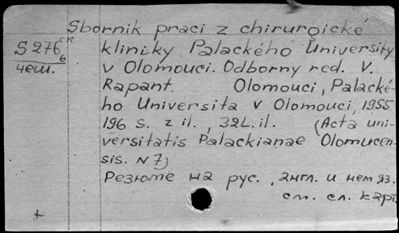 Sborník prací z chirurgické
S 276 ск
6
чеш.
kliniky Palackého University
v Olomouci. Odborny red. V.
Rapant. Olomouci, Palacké-
ho Universita v Olomouci, 1955
196 s. z il., 32L. il. (Acta uni-
versitatis Palackianae Olomucen-
sis. N 7)
Резюме на рус., англ. и нем яз.
см. сл. карт
+